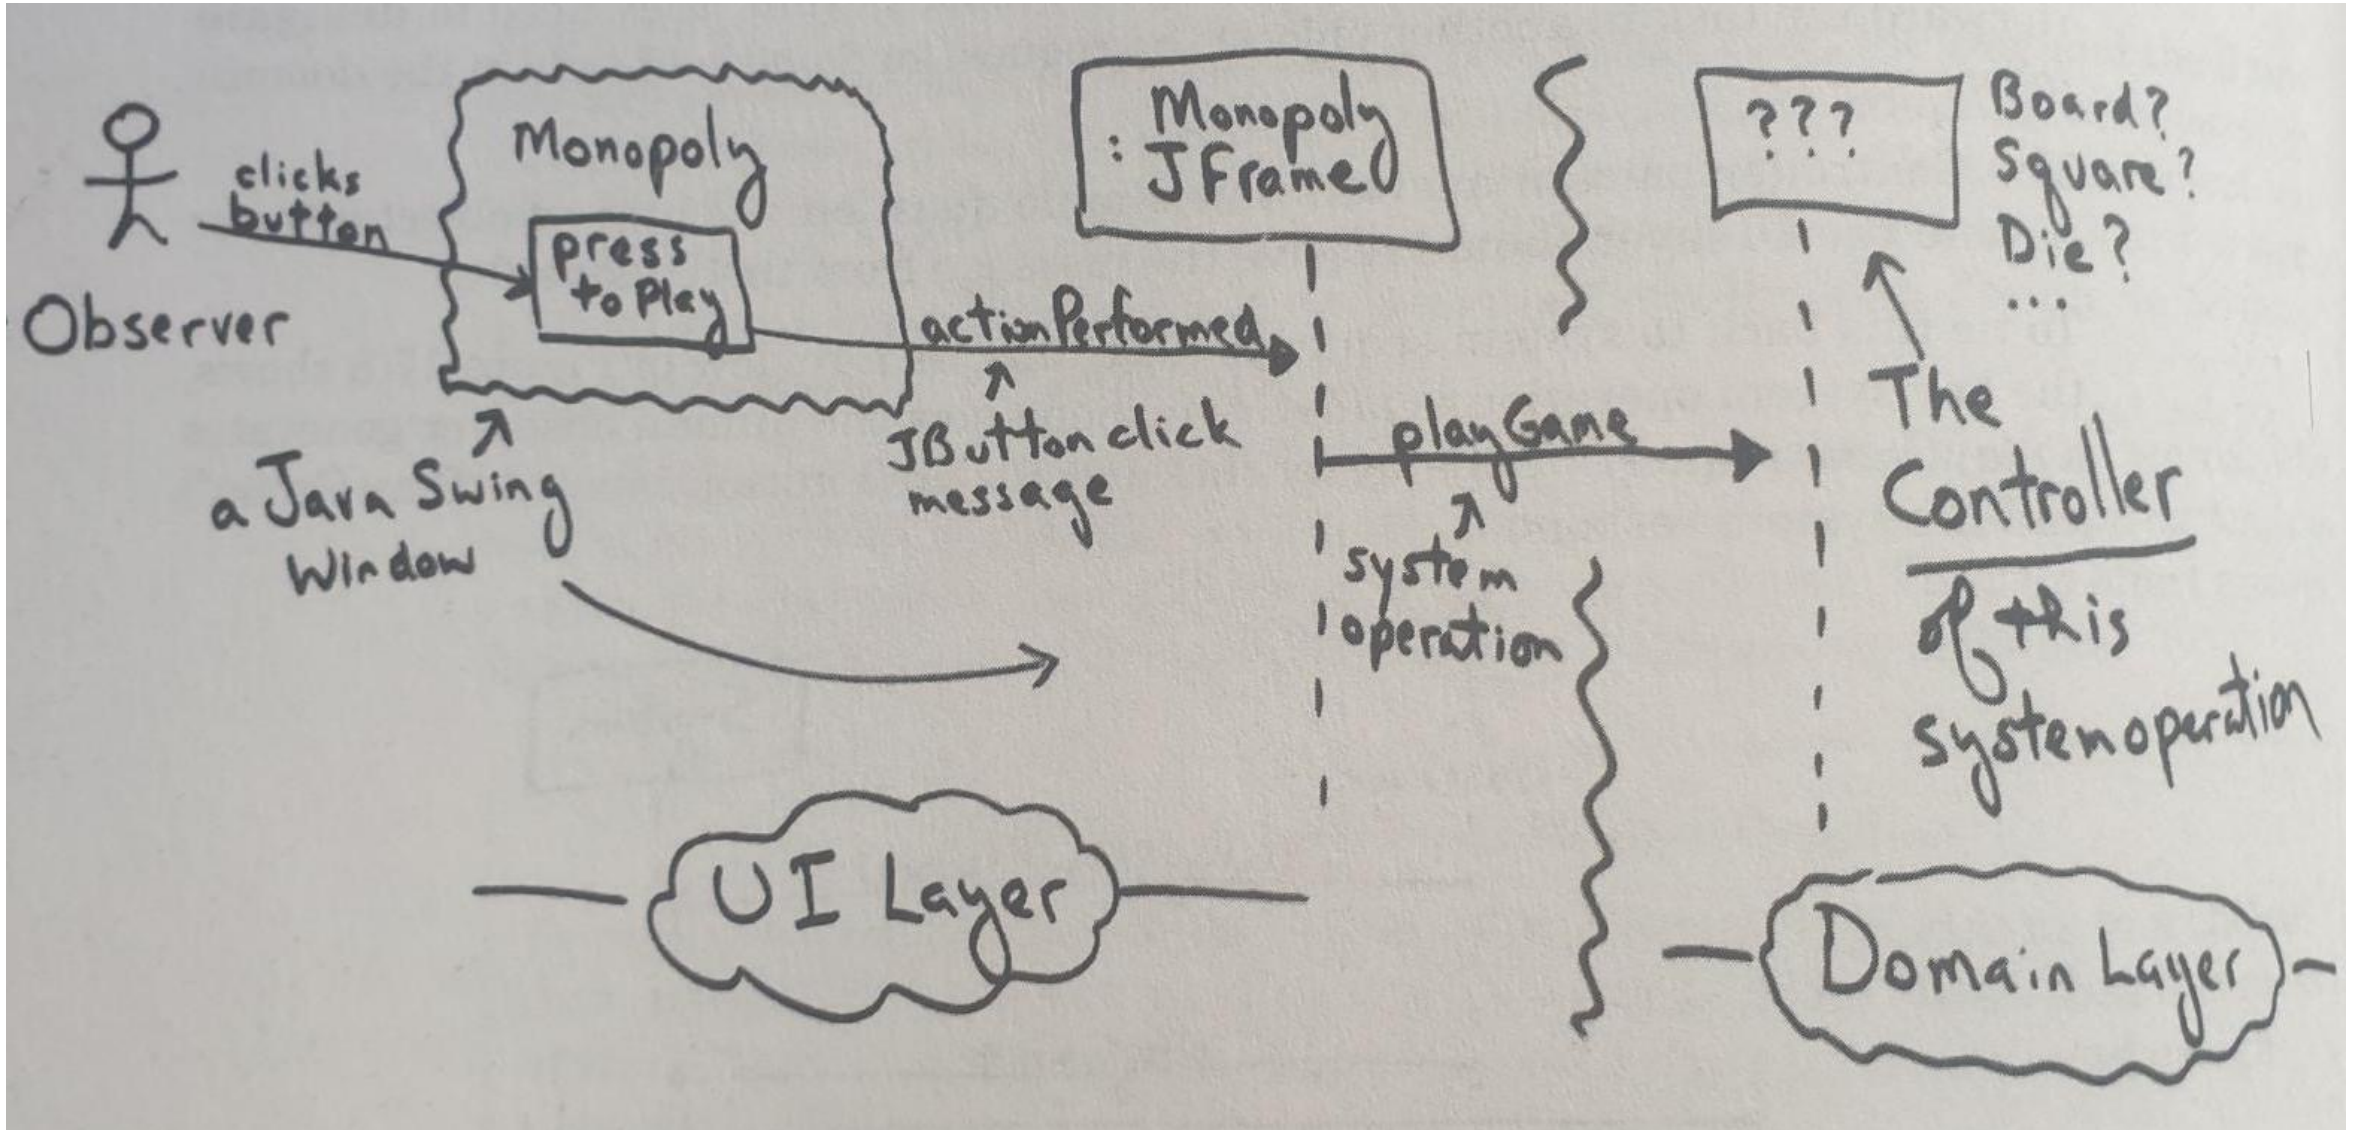 Observer
clicks
button
Monopoly
press
to Play
a Java Swing
Window
actionPerformed
JButton click
message
Monopoly
: JFrame
playGame
system
operation
???
Board?
Square?
Die?
...
The
Controller
of this
system operation
UI Layer
Domain Layer